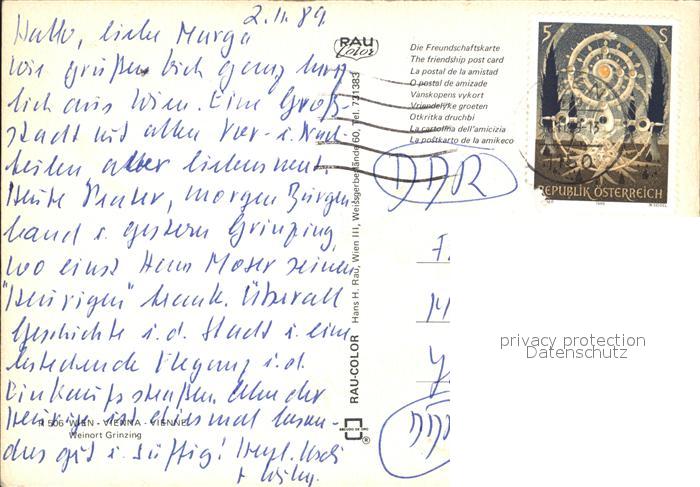 2.11.89
Hallo, liebe Marga
wir grüßen Dich ganz herz-
lich aus Wien. Eine Groß-
stadt mit allen Vor- u. Nach-
teilen aber liebenswert.
Heute Prater, morgen Burgen-
land u. gestern Grinzing,
wo einst Hans Moser seinen
"Heurigen" trank. Überall
Geschichte i.d. Stadt u. eine
bestechende Eleganz i.d.
Einkaufsstraßen. Aber der
Heurige ist diesmal beson-
ders gut u. süffig! Herzl.
R 506 WIEN - VIENNA - VIENNE
Weinort Grinzing
RAU
Color
RAU-COLOR Hans H. Rau, Wien III, Weissgerberlände 60, Tel. 731383
Die Freundschaftskarte
The friendship post card
La postal de la amistad
O postal de amizade
Vanskopens vykort
Vriendelijke groeten
Otkritka druchbi
La cartolina dell'amicizia
La poŝtkarto de la amikeco
5 S
REPUBLIK ÖSTERREICH
DDR
F.
M
DDR
privacy protection
Datenschutz